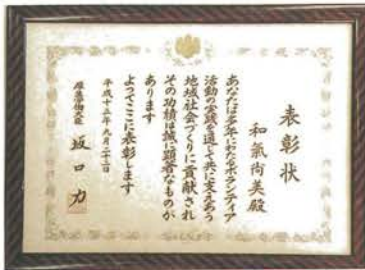 表彰状
和氣尚美殿
あなたは多年にわたるボランティア
活動の実践を通して共に支えあう
地域社会づくりに貢献され
その功績は誠に顕著なものが
あります
よってここに表彰します
平成十五年九月二十二日
厚生労働大臣 坂口力